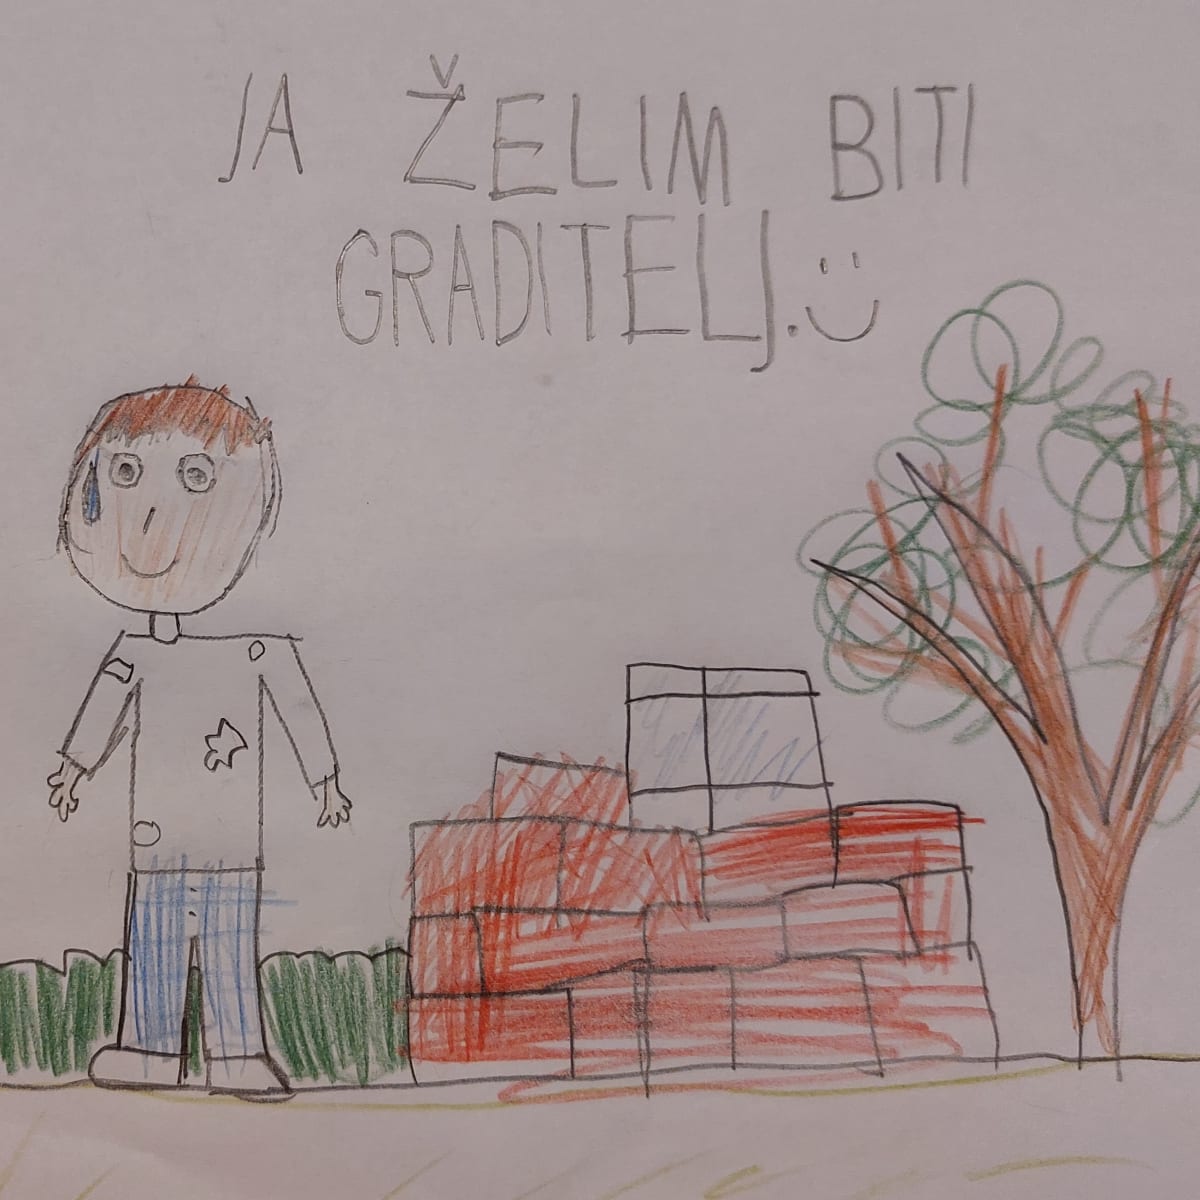 JA ŽELIM BITI
GRADITELJ. :)